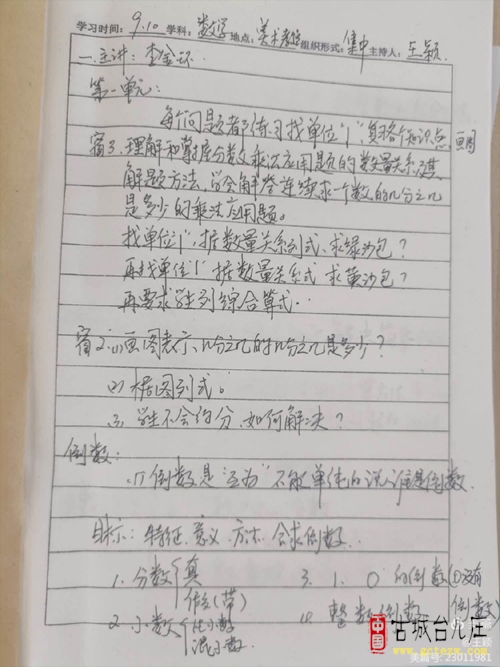 学习时间：9.10 学科：数学 地点：美术教室 组织形式：集中 主持人：王颖
一.主讲：李金环
第一单元：
每个问题都练习找单位"1"，复习各个知识点 画图
窗3.理解和掌握分数乘法应用题的数量关系及其
解题方法，学会解答连续求一个数的几分之几
是多少的乘法应用题。
找单位"1"，据数量关系列式、求绿沙包？
再找单位"1" 据数量关系式 求黄沙包？
再要求学生列综合算式..
窗2.(1)画图表示、几分之几的几分之几是多少？
(2)据图列式。
(3)学生不会约分、如何解决？
倒数：
(1)倒数是"互为"不能单纯的说谁是倒数.
目标：特征、意义、方法、会求倒数.
1.分数{真 3. 1、0的倒数(0没有
假(带) 倒数)
2.小数{纯小数 4.整数倒数
混小数
中国 古城台儿庄
www.gctezw.com
美篇号：23011981